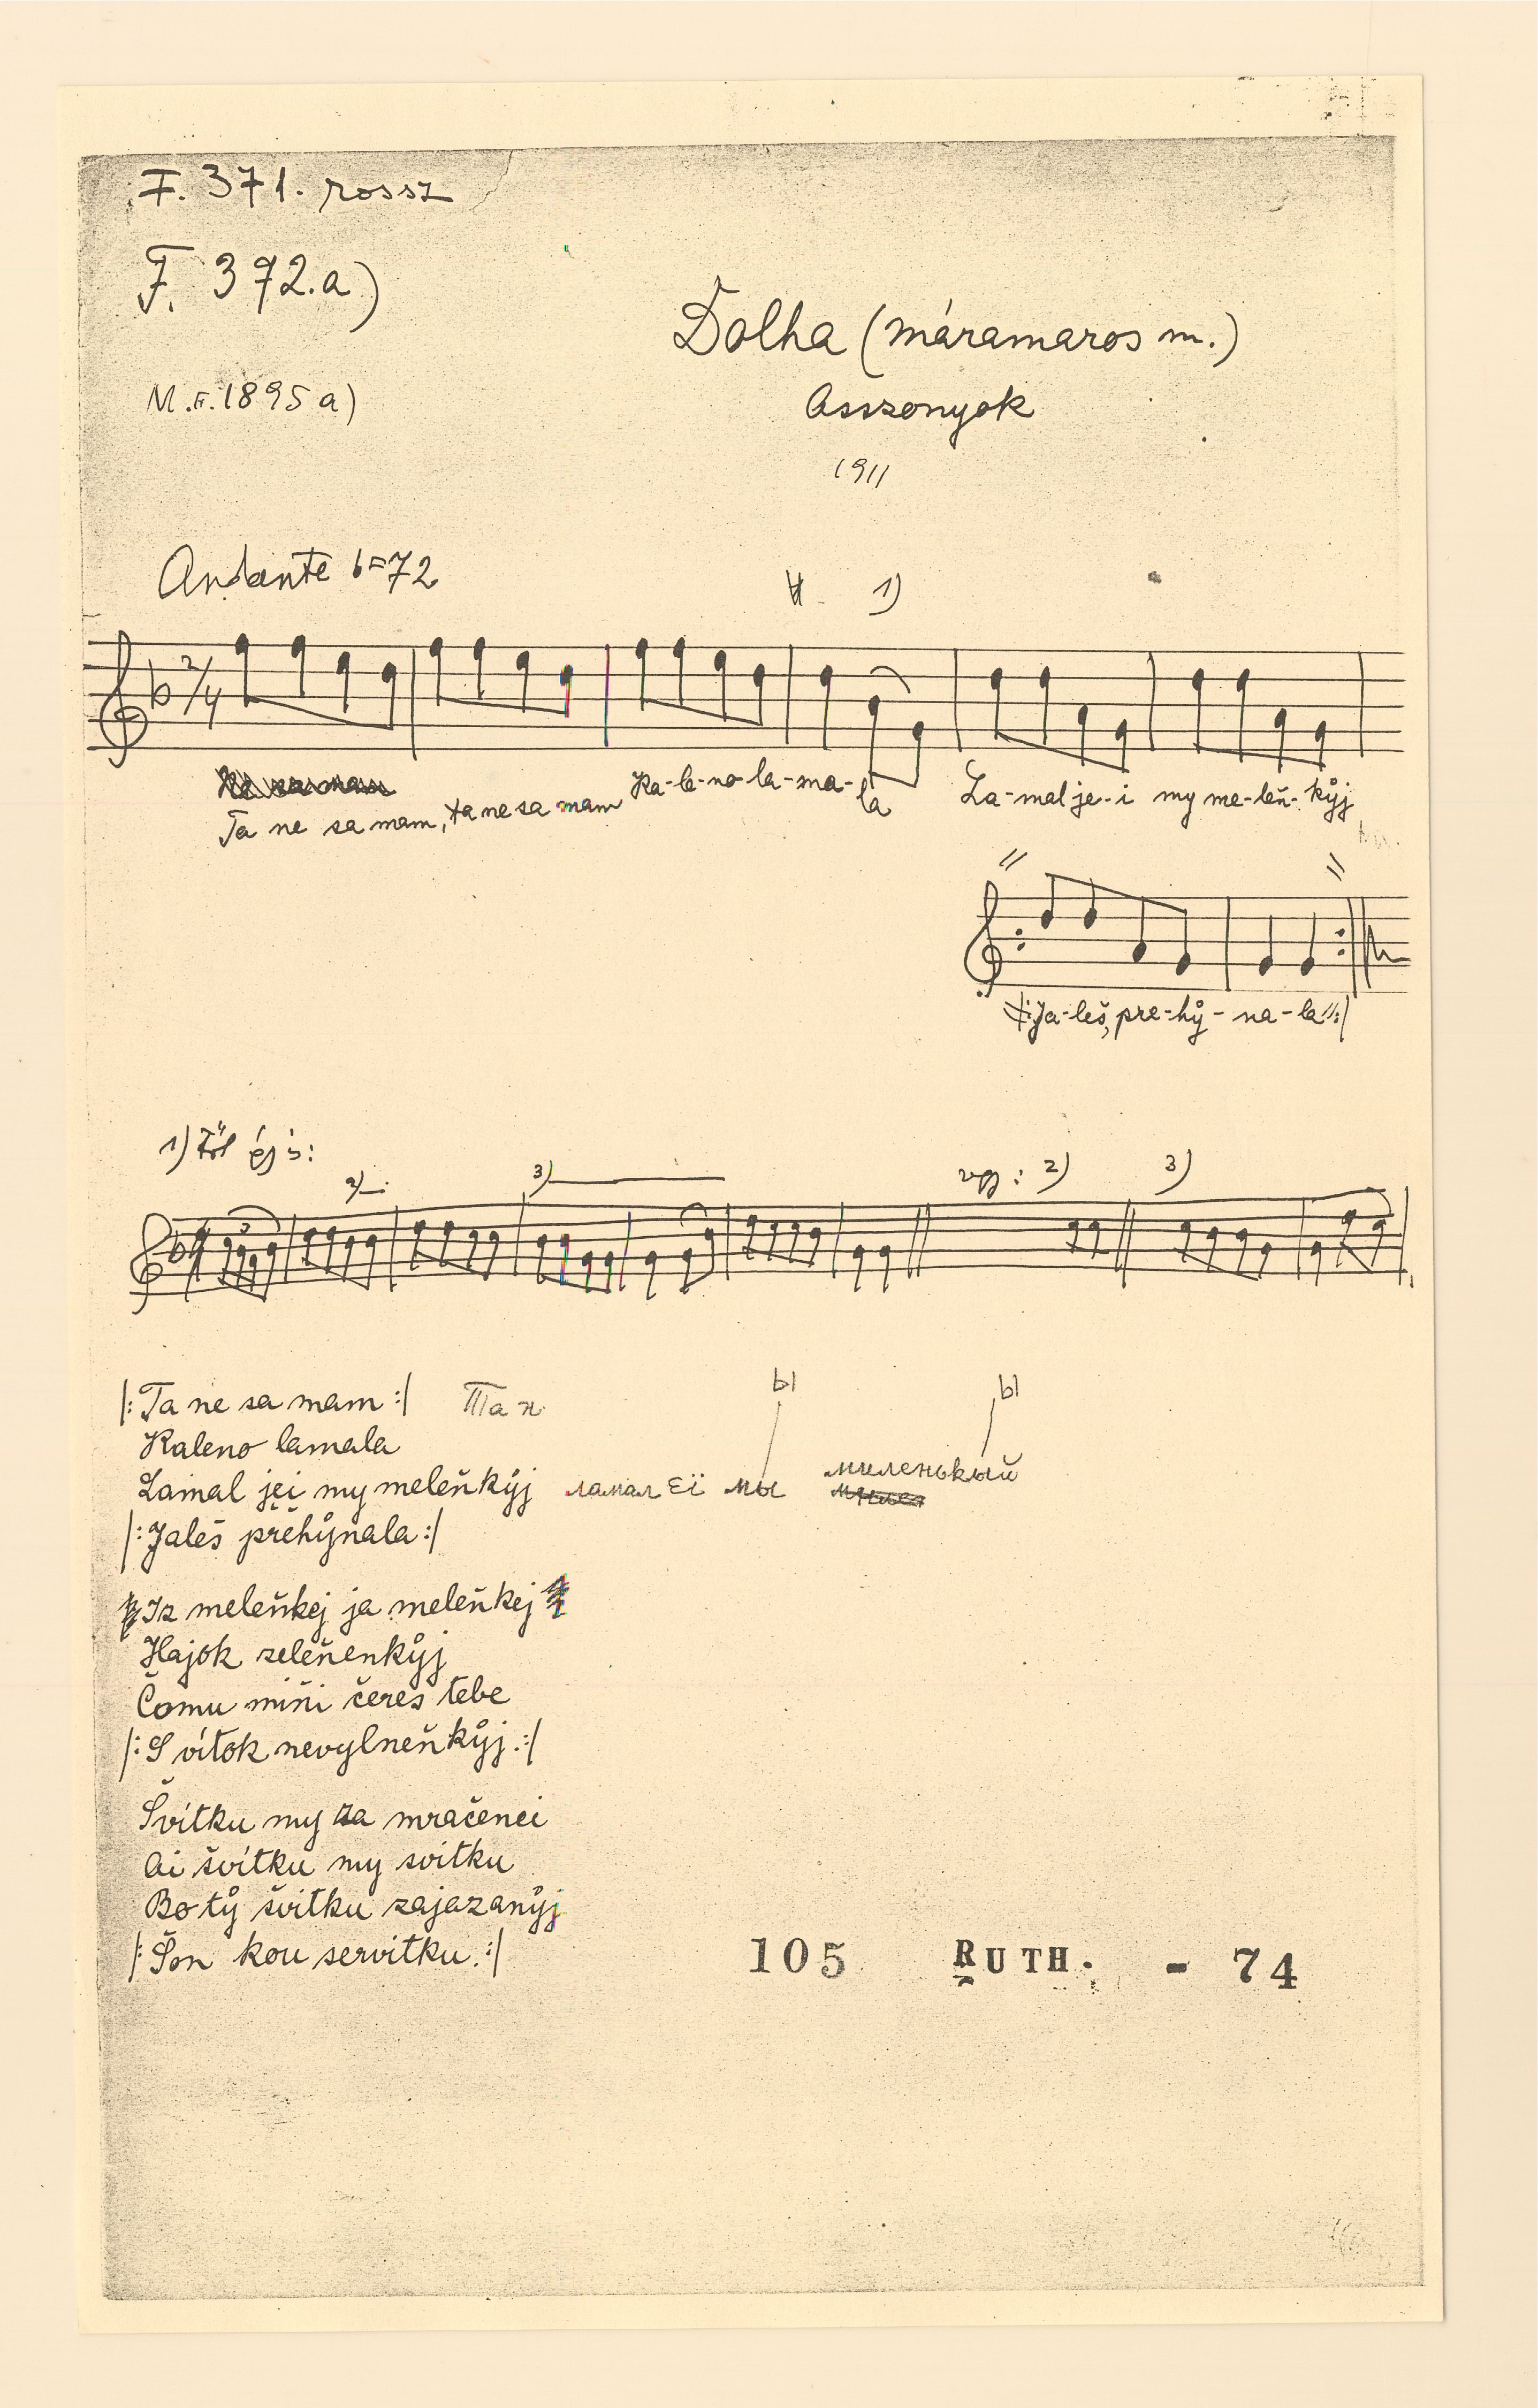 F. 371. rossz
F. 372.a)
Dolha (Máramaros m.)
M.F. 1895 a)
Asszonyok
1911
Andante =72
1)
2/4
Ta ne sa mam, ta ne sa mam Ka-le-no la-ma-la La-mal je-i my me-leň-kŷj
|:Ja-leš, pre-hŷ-na-la:|
1) től így is:
2) 3) vgy: 2) 3)
3
|: Ta ne sa mam :| Та н
ы ы
Kaleno lamala
Lamal jei my meleňkŷj ламал еї мы миленькый
|: Jaleš prehŷnala :|
Iz meleňkej ja meleňkej
Hajok zeleňenkŷj
Čomu miňi čeres tebe
|: Svitok nevylneňkŷj. :|
Švitku my za mračenei
Ai švitku my svitku
Bo tŷ švitku zajazanŷj
|: Šon kou servitku. :|
105 RUTH. - 74